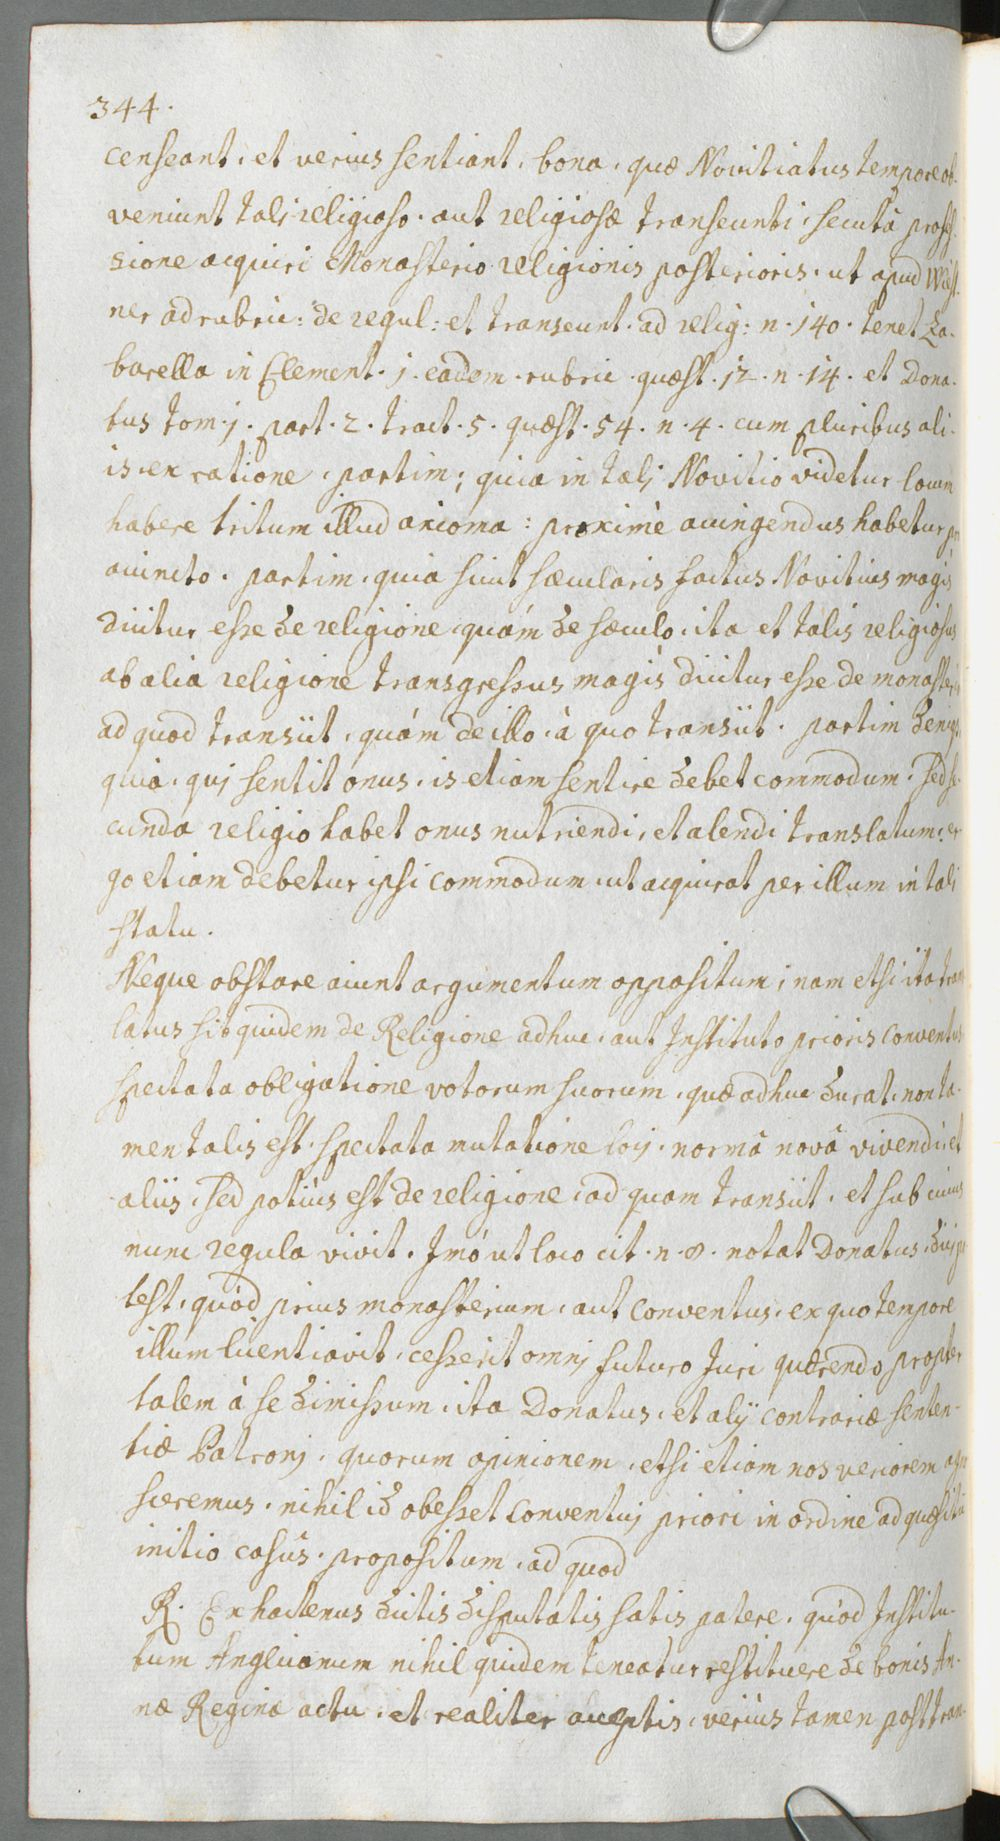 344.
censeant, et verius sentiant, bona, quæ Novitiatus tempore ob-
veniunt tali religioso, aut religiosæ transeunti, secutâ profes-
sione acquiri Monasterio religionis posterioris, ut apud Wiest-
ner ad rubric: de regul: et transeunt. ad relig: n. 140. tenet Za-
barella in Clement. j. eadem rubric quæst. 12. n. 14. et Dona-
tus tom. j. part. 2. tract. 5. quæst. 54. n. 4. cum pluribus ali-
is, ex ratione, partim; quia in talj Novitio videtur locum
habere tritum illud axioma: proximè accingendus habetur pro
accincto. partim, quia sicut sæcularis factus Novitius magis
dicitur esse de religione, quám de sæculo, ita et talis religiosus
ab alia religione transgressus magis dicitur esse de monasterio
ad quod transiit, quám de illo, à quo transiit. partim deniq
quia, quj sentit onus, is etiam sentire debet commodum. sed se-
cunda religio habet onus nutriendi, et alendi translatum, er-
go etiam debetur ipsi commodum, ut acquirat per illum in tali
statu.
Neque obstare aiunt argumentum oppositum; nam etsi ita trans-
latus sit quidem de Religione adhuc, aut Instituto prioris conventus
spectata obligatione votorum suorum, quæ adhuc durat, non ta-
men talis est, spectata mutatione locj, normâ novâ vivendi, et
aliis, sed potius est de religione, ad quam transiit, et sub cuius
nunc regula vivit. Imó ut loco cit. n. 8. notat Donatus, dicj po-
test, quòd prius monasterium, aut conventus, ex quo tempore
illum licentiavit, cesserit omnj futuro Juri quærendo propter
talem à se dimissum, ita Donatus, et alij contrariæ senten-
tiæ Patronj, quorum opinionem, etsi etiam nos veriorem agno
sceremus, nihil id obesset conventuj priori in ordine ad quæsitum
initio casûs propositum, ad quod
R. Ex hactenus dictis disputatis satis patere, quòd Institu-
tum Anglicanum nihil quidem teneatur restituere de bonis An-
næ Reginæ actu, et realiter acceptis, verius tamen post tran-